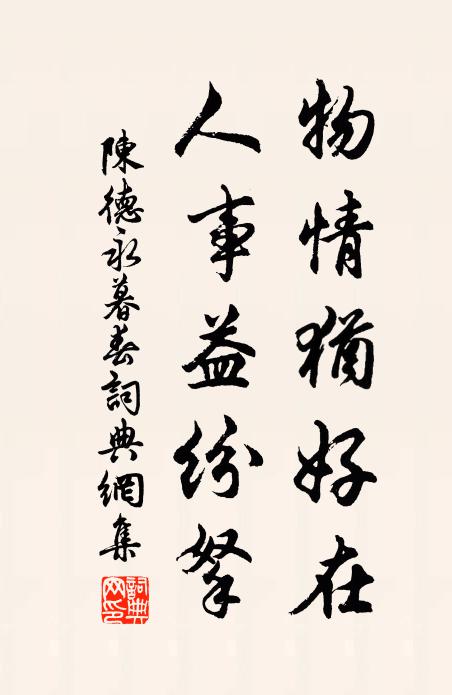 物情猶好在
人事益紛拏
陳德永暮春詞典網集
詞典網印